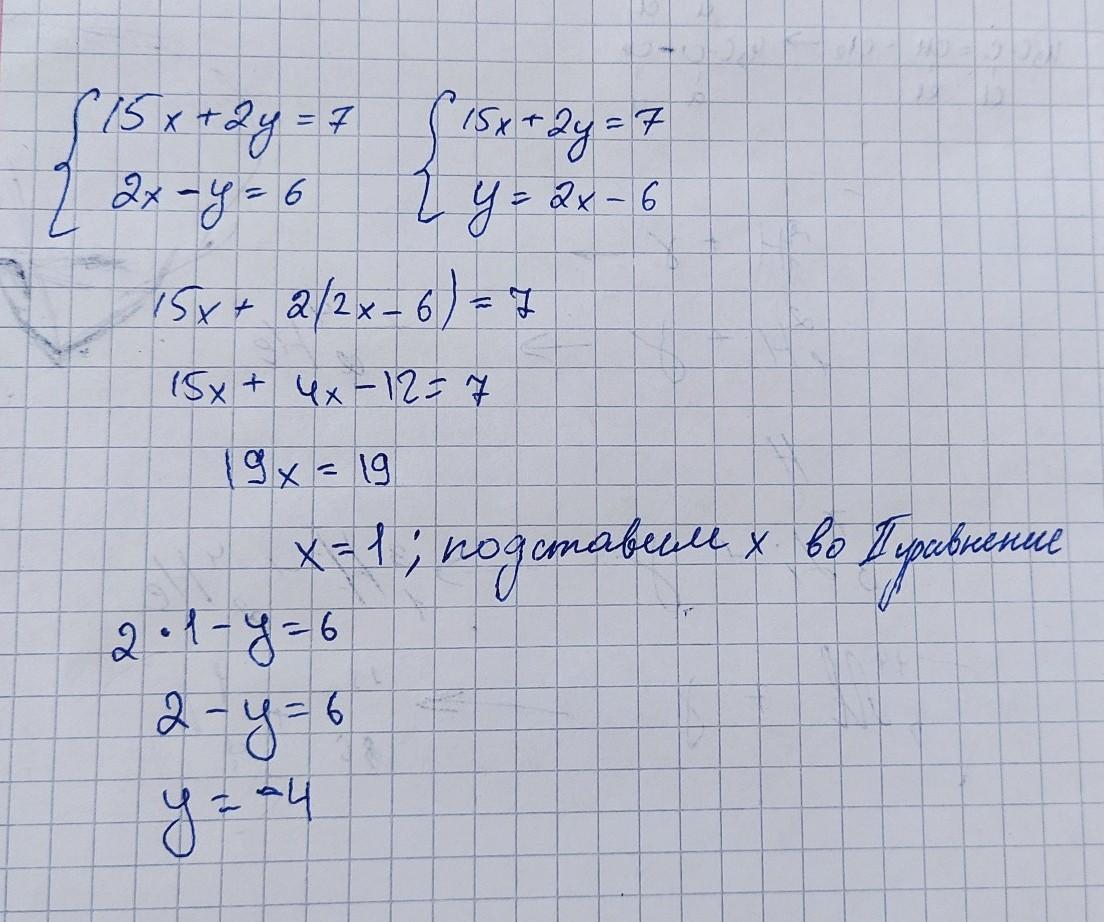 15x+2y=7 15x+2y=7
2x-y=6 y=2x-6
15x+2(2x-6)=7
15x+4x-12=7
19x=19
x=1; подставим x во II уравнение
2·1-y=6
2-y=6
y=-4